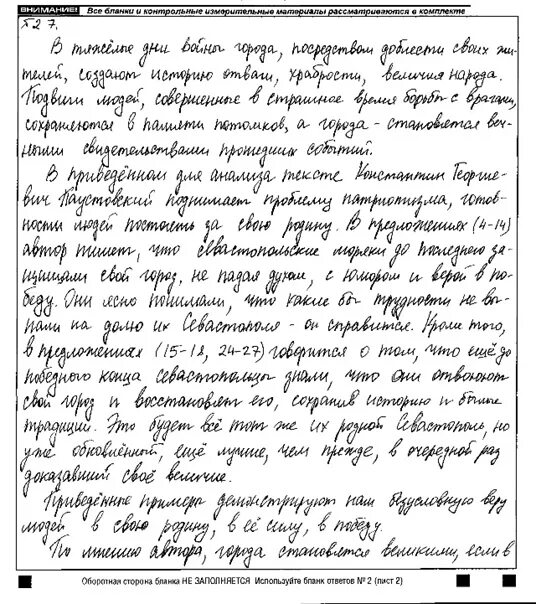 ВНИМАНИЕ! Все бланки и контрольные измерительные материалы рассматриваются в комплекте
27.
В тяжёлые дни войны города, посредством доблести своих жи-
телей, создают историю отваги, храбрости, величия народа.
Подвиги людей, совершенные в страшное время борьбы с врагами,
сохраняются в памяти потомков, а города - становятся веч-
ными свидетельствами прошедших событий.
В приведённом для анализа тексте Константин Георгие-
вич Паустовский поднимает проблему патриотизма, готов-
ности людей постоять за свою родину. В предложениях (4-14)
автор пишет, что севастопольские моряки до последнего за-
щищали свой город, не падая духом, с юмором и верой в по-
беду. Они ясно понимали, что какие бы трудности не вы-
пали на долю их Севастополя - он справится. Кроме того,
в предложениях (15-18, 24-27) говорится о том, что ещё до
победного конца севастопольцы знали, что они отвоюют
свой город и восстановят его, сохранив историю и былые
традиции. Это будет всё тот же их родной Севастополь, но
уже обновлённый, ещё лучше, чем прежде, в очередной раз
доказавший своё величие.
Приведённые примеры демонстрируют нам безусловную веру
людей в свою родину, в её силу, в победу.
По мнению автора, города становятся великими, если в
Оборотная сторона бланка НЕ ЗАПОЛНЯЕТСЯ Используйте бланк ответов № 2 (лист 2)